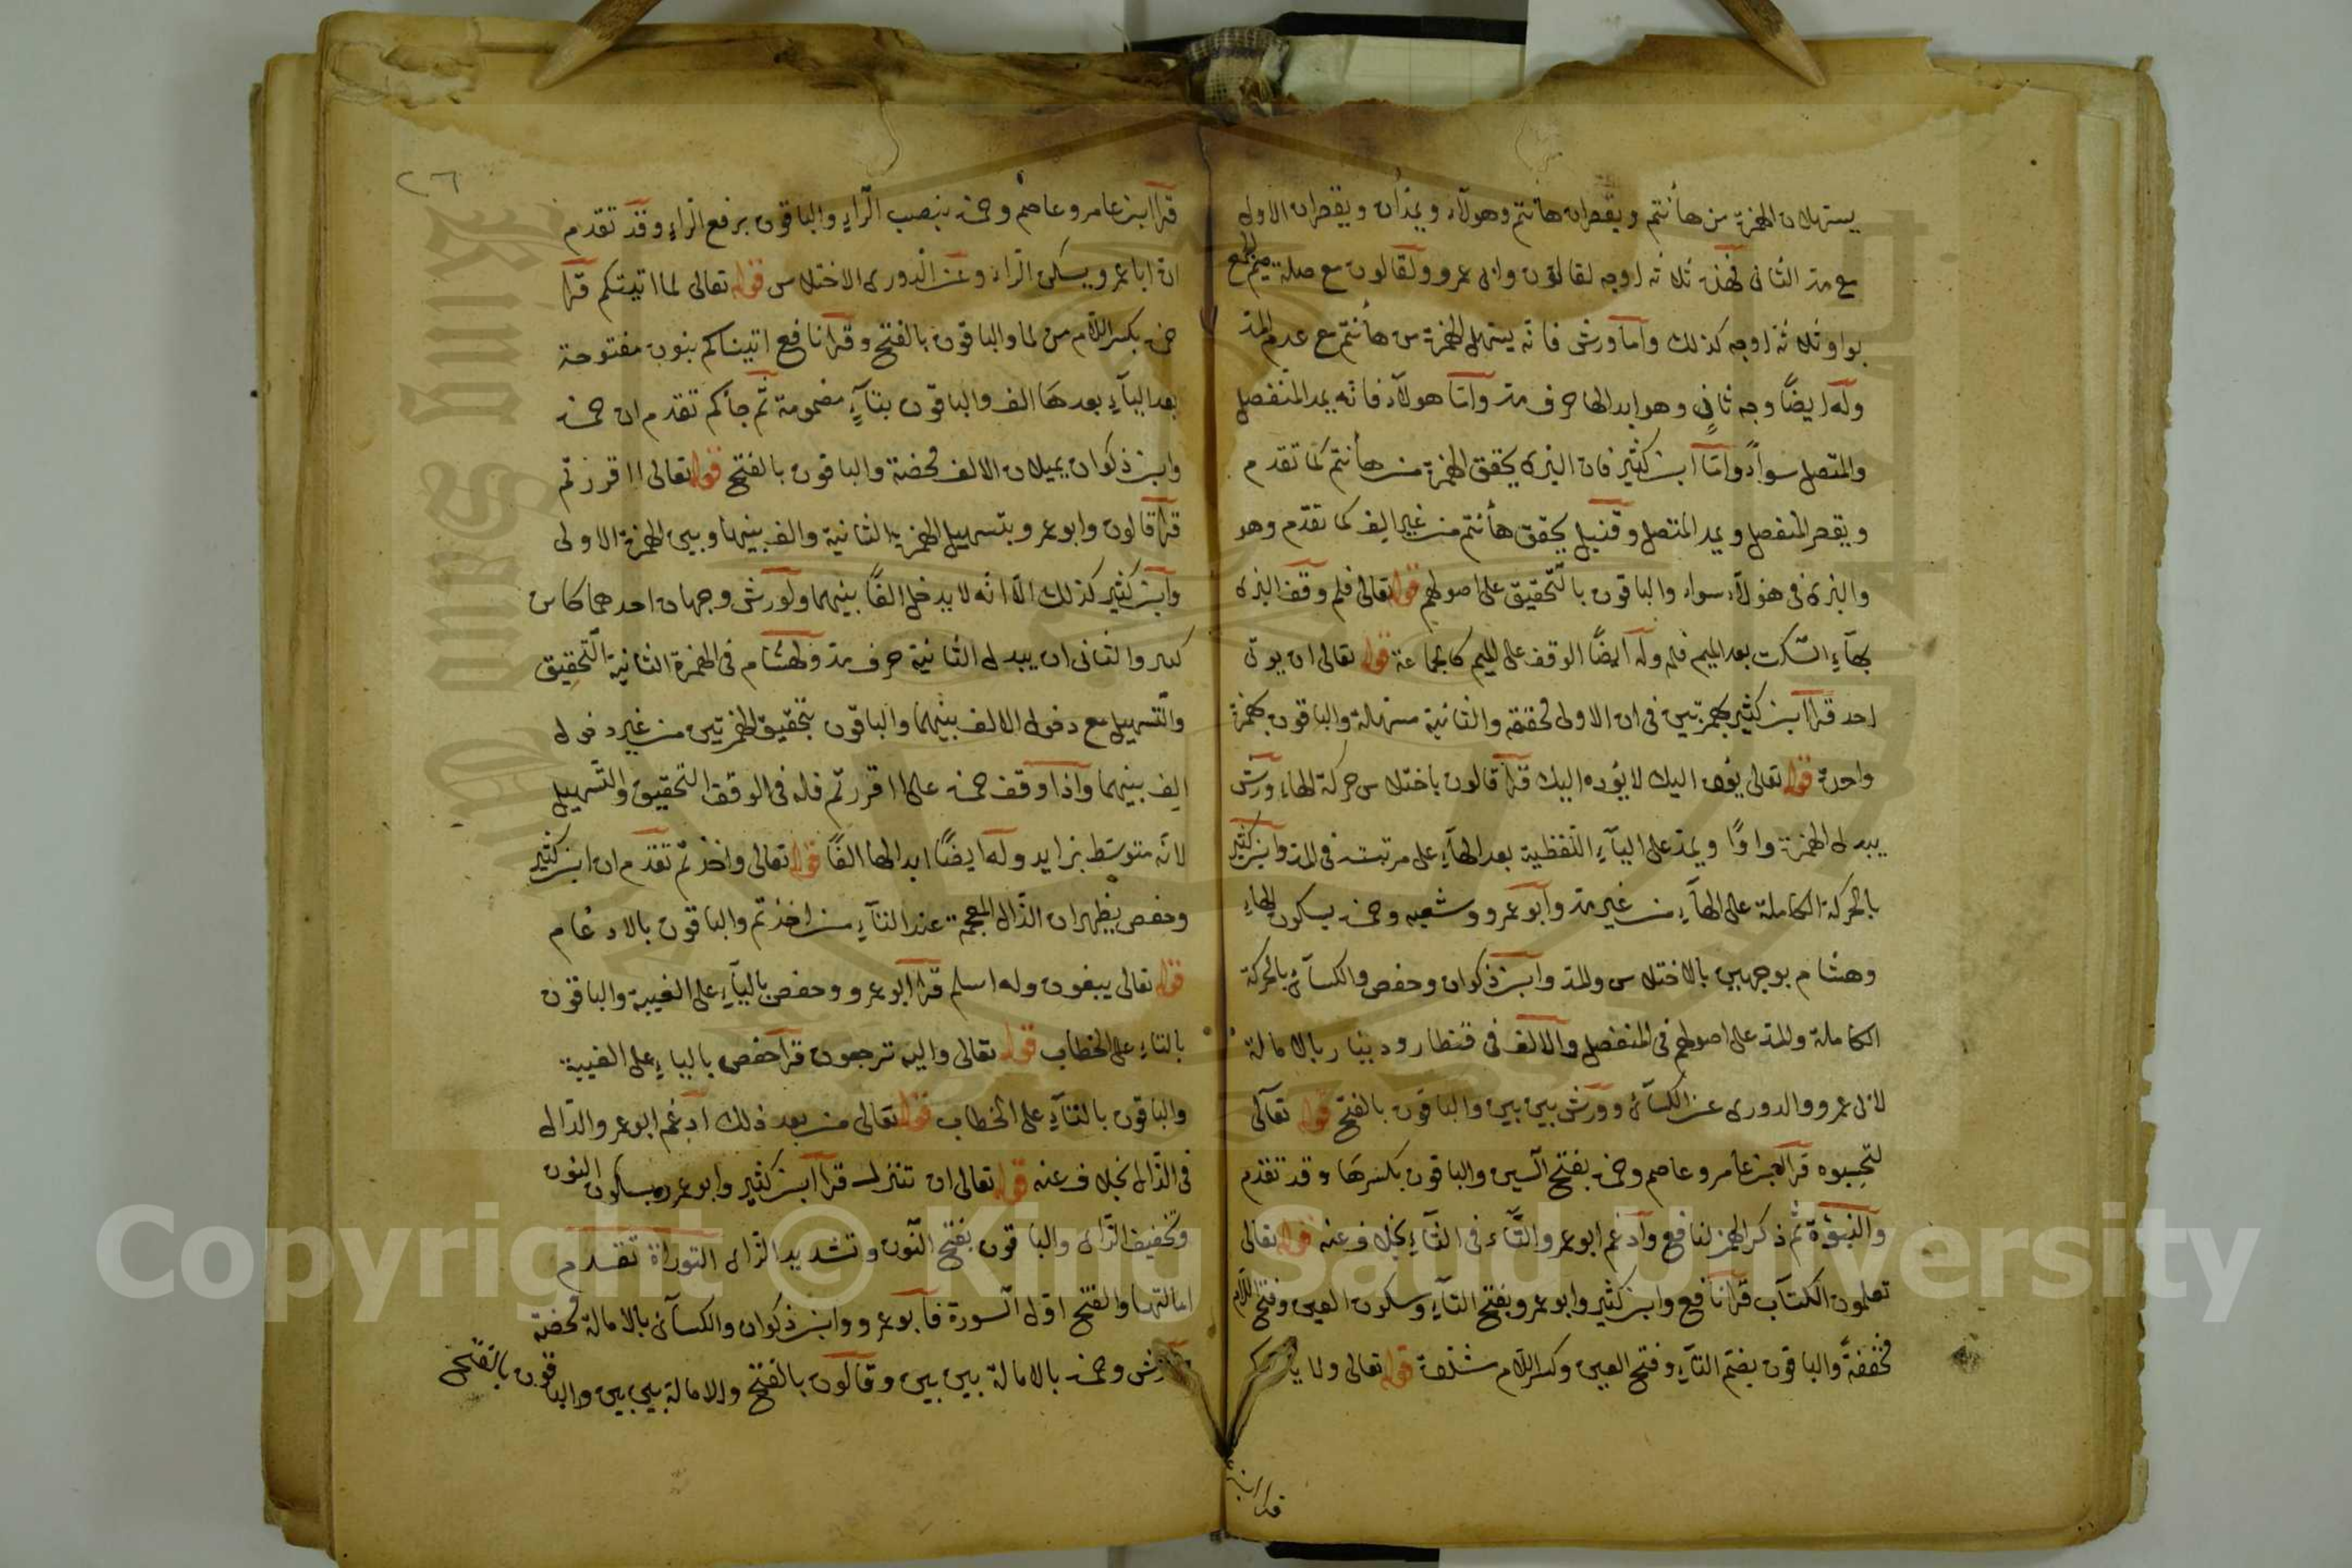 يسهلان الهمزة من هاأنتم ويقصران هاأنتم وهؤلاء ويمدان ويقصران الاولى
مع مد الثانى فهذه ثلاثه اوجه لقالون وابى عمرو ولقالون مع صلة ميم الجمع
بواو ثلاثة اوجه كذلك واما ورش فانه يسهل الهمزة من هأنتم مع عدم المد
وله ايضًا وجه ثانٍ وهو ابدالها حرف مد واما هولآء فانه يمد المنفصل
والمتصل سواءً واما ابن كثير فان البزى يحقق الهمزة من هاأنتم كما تقدم
ويقصر المنفصل ويمد المتصل وقنبل يحقق هأنتم من غير الف كما تقدم وهو
والبزى فى هؤلآء سواء والباقون بالتحقيق على اصولهم قوله تعالى فلم وقف البزى
بهآءِ السكت بعد الميم فلمه وله ايضًا الوقف على الميم كالجماعة قوله تعالى ان يوتى
احد قرا ابن كثير بهمزتين فى ان الاولى محققه والثانية مسهلة والباقون بهمزة
واحدة قوله تعالى يؤده اليك لا يؤده اليك قرا قالون باختلاس حركة الهاء ورش
يبدل الهمزة واوًا ويمد على اليآءِ اللفظية بعد الهآءِ على مرتبته فى المد وابن كثير
بالحركة الكاملة على الهآءِ من غير مد وابو عمرو وشعبه وحمزه بسكون الهاءِ
وهشام بوجهين بالاختلاس والمد وابن ذكوان وحفص والكسآئى بالحركة
الكاملة والمد على اصولهم فى المنفصل والالف فى قنطار ودينار بالامالة
لابى عمرو والدورى عن الكسآئى وورش بين بين والباقون بالفتح قوله تعآلى
لتحسبوه قرا ابن عامر وعاصم وحمزه بفتح السين والباقون بكسرها وقد تقدم
والنبوّة ثم ذكر الهمز لنافع وادغم ابو عمرو التّآء فى الثآءِ بخلاف عنه قوله تعالى
تعلمون الكتاب قرا نافع وابن كثير وابو عمرو بفتح التآءِ وسكون العين وفتح اللام
مخففةً والباقون بضم التآءِ وفتح العين وكسر اللام مشدّدة قوله تعالى ولا يأمركم
قرا ابن
٢٦
قرا ابن عامر وعاصم وحمزه بنصب الرّاءِ والباقون برفع الرّاءِ وقد تقدم
ان ابا عمرو يسكن الراء وعن الدورى الاختلاس قوله تعالى لما اتيتكم قرا
حمزه بكسر اللام من لما والباقون بالفتح وقرا نافع اتيناكم بنون مفتوحة
بعد اليآءِ بعدها الف والباقون بتآءٍ مضمومة ثم جآكم تقدم ان حمزه
وابن ذكوان يميلان الالف محضة والباقون بالفتح قوله تعالى ااقررتم
قرا قالون وابو عمرو بتسهيل الهمزة الثانية والف بينها وبين الهمزة الاولى
وابن كثير كذلك الّا انّه لا يدخل الفًا بينهما ولورش وجهان احدهما كابن
كثير والثانى ان يبدل الثانية حرف مد ولهشام فى الهمزة الثانية التحقيق
والتسهيل مع دخول الالف بينهما والباقون بتحقيق الهمزتين من غير دخول
الف بينهما واذا وقف حمزه على ااقررتم فله فى الوقف التحقيق والتسهيل
لانه متوسّط بزايد وله ايضًا ابدالها الفًا قوله تعالى واخذتم تقدم ان ابن كثير
وحفص يظهران الذّال المعجمة عند التآءِ من اخذتم والباقون بالادغام
قوله تعالى يبغون وله اسلم قرا ابو عمرو وحفص باليآءِ على الغيبة والباقون
بالتاءِ على الخطاب قوله تعالى واليه ترجعون قرا حفص بالياءِ على الغيبة
والباقون بالتآءِ على الخطاب قوله تعالى من بعد ذلك ادغم ابو عمرو الدّال
فى الذّال بخلاف عنه قوله تعالى ان تنزل قرا ابن كثير وابو عمرو بسكون النون
وتخفيف الزّاى والباقون بفتح النّون وتشديد الزّاى التوراة تقدم
امالتها والفتح اوّل السّورة فابو عمرو وابن ذكوان والكسآئى بالامالة محضة
وورش وحمزه بالامالة بين بين وقالون بالفتح والامالة بين بين والباقون بالفتح
King Saud University
Copyright © King Saud University